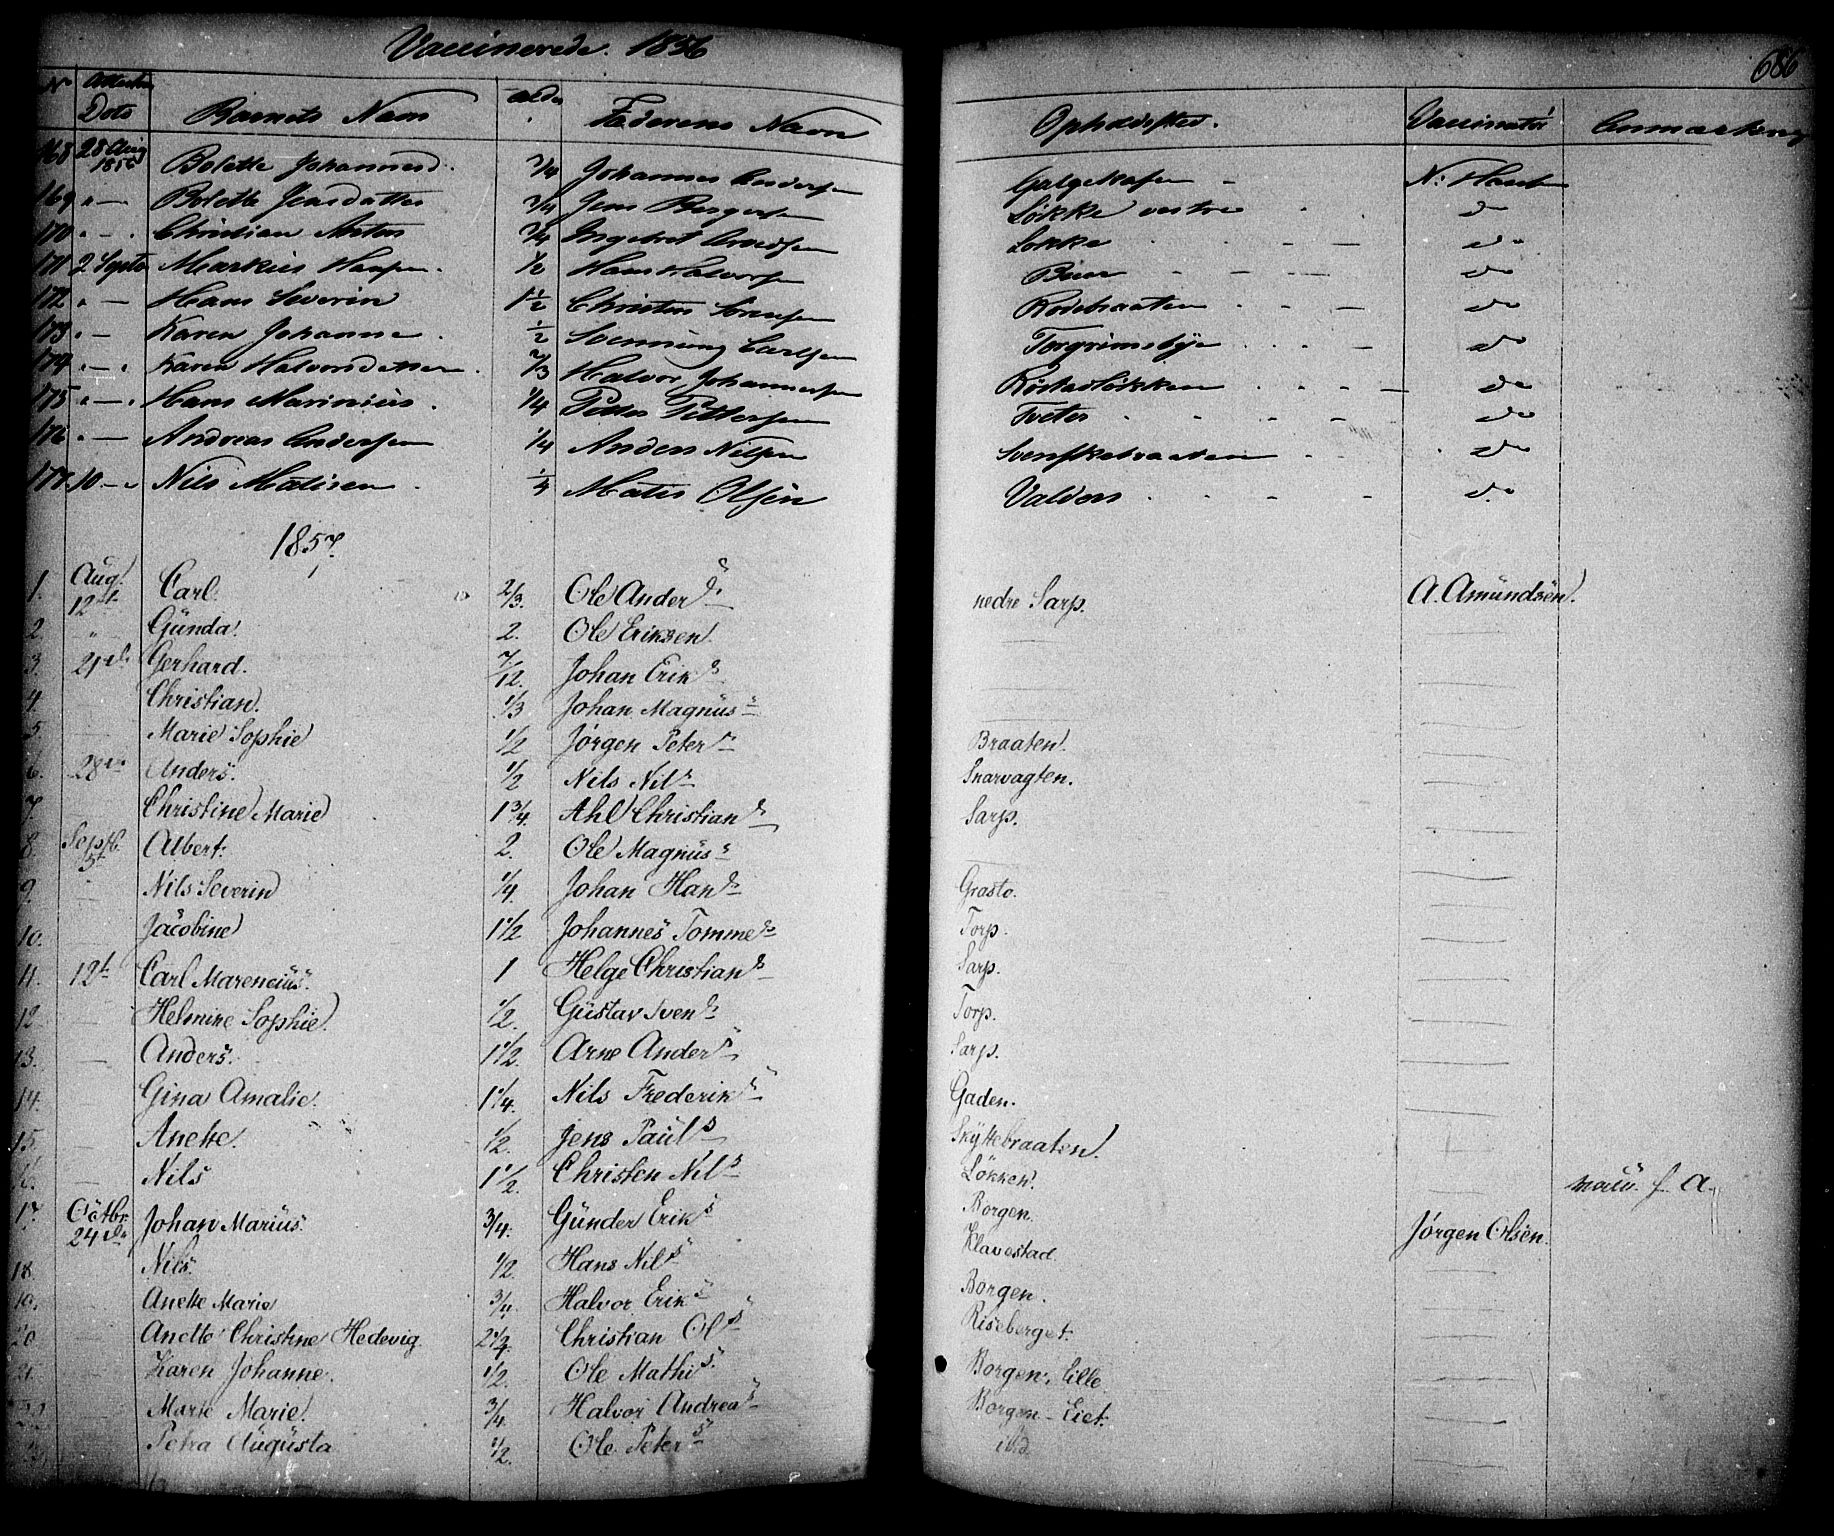 Vaccinerede. 1856
686
No Attestens Dato Barnets Navn alder Faderens Navn Opholdsted. Vaccinatör Anmærkning
168 28 Aug 1856 Bolette Johannesd. 3/4 Johannes Andersen N: Hansen
169 " — Bolette Jensdatter 3/4 Jens Løkke vestre do
170 " — Christian 3/4 Ingebret Løkke do
171 2 Septb Markus Hansen. 1/2 Hans Halvorsen do
172 " — Hans Severin 1 1/2 Christen Sørensen Rødebraaten do
173 " — Karen Johanne 1/2 Svenning Carlsen Torgrimsbye do
174 " — Karen Halvorsdatter 2/3 Halvor Johannesen do
175 " — Hans Marinius. 1/4 Petter Pettersen Tveter do
176 " — Andreas Andersen 1/4 Anders Nilsen Svenskebraaten do
177. 10 — Nils Matisen 1/4 Matis Olsen Valders do
1857.
1. Aug. 12te Carl. 2/3. Ole Anders. nedre Sarp. A. Amundsen.
2. " Gunda. 2. Ole Eriksen.
3. 21de Gerhard. 7/12. Johan Eriks.
4 Christian. 1/3 Johan Magnus s
5. Marie Sophie 1/2 Jørgen Peters Braaten.
6. 28de Anders. 1/2 Nils Nils Snarvagten.
7. Christine Marie 1 3/4. Ahl Christians Sarp.
8. Septb. 5t Albert. 2. Ole Magnus s
9. Nils Severin 1/4 Johan Hans Grasto.
10. Jacobine 1 1/2 Johannes Tommes Torp.
11. 12t Carl Marencius. 1 Helge Christians Sarp.
12 Helmine Sophie. 1/2 Gustav Svens Torp.
13. Anders. 1 1/2. Arne Anders Sarp.
14. Gina Amalie. 1 1/4. Nils Frederiks Gaden.
15. Anette. 1/2. Jens Pauls Skyttebraaten.
16. Nils 1 1/2. Christen Nils Løkken. f. A.
17. Octbr. 24de Johan Marius. 3/4. Gunder Eriks Borgen. Jørgen Olsen.
18. Nils. 1/2. Hans Nils Klavestad.
19. Anette Marie 3/4. Halvor Eriks Borgen.
20 Anette Christine Hedevig. 2 1/4. Christian Ols Riseberget.
21. Karen Johanne. 1/2. Ole Mathis. Borgen, Lille.
22. Marie Marie. 3/4. Halvor Andreas Borgen-Eiet.
23. Petra Augusta 1/2. Ole Peters ibd.